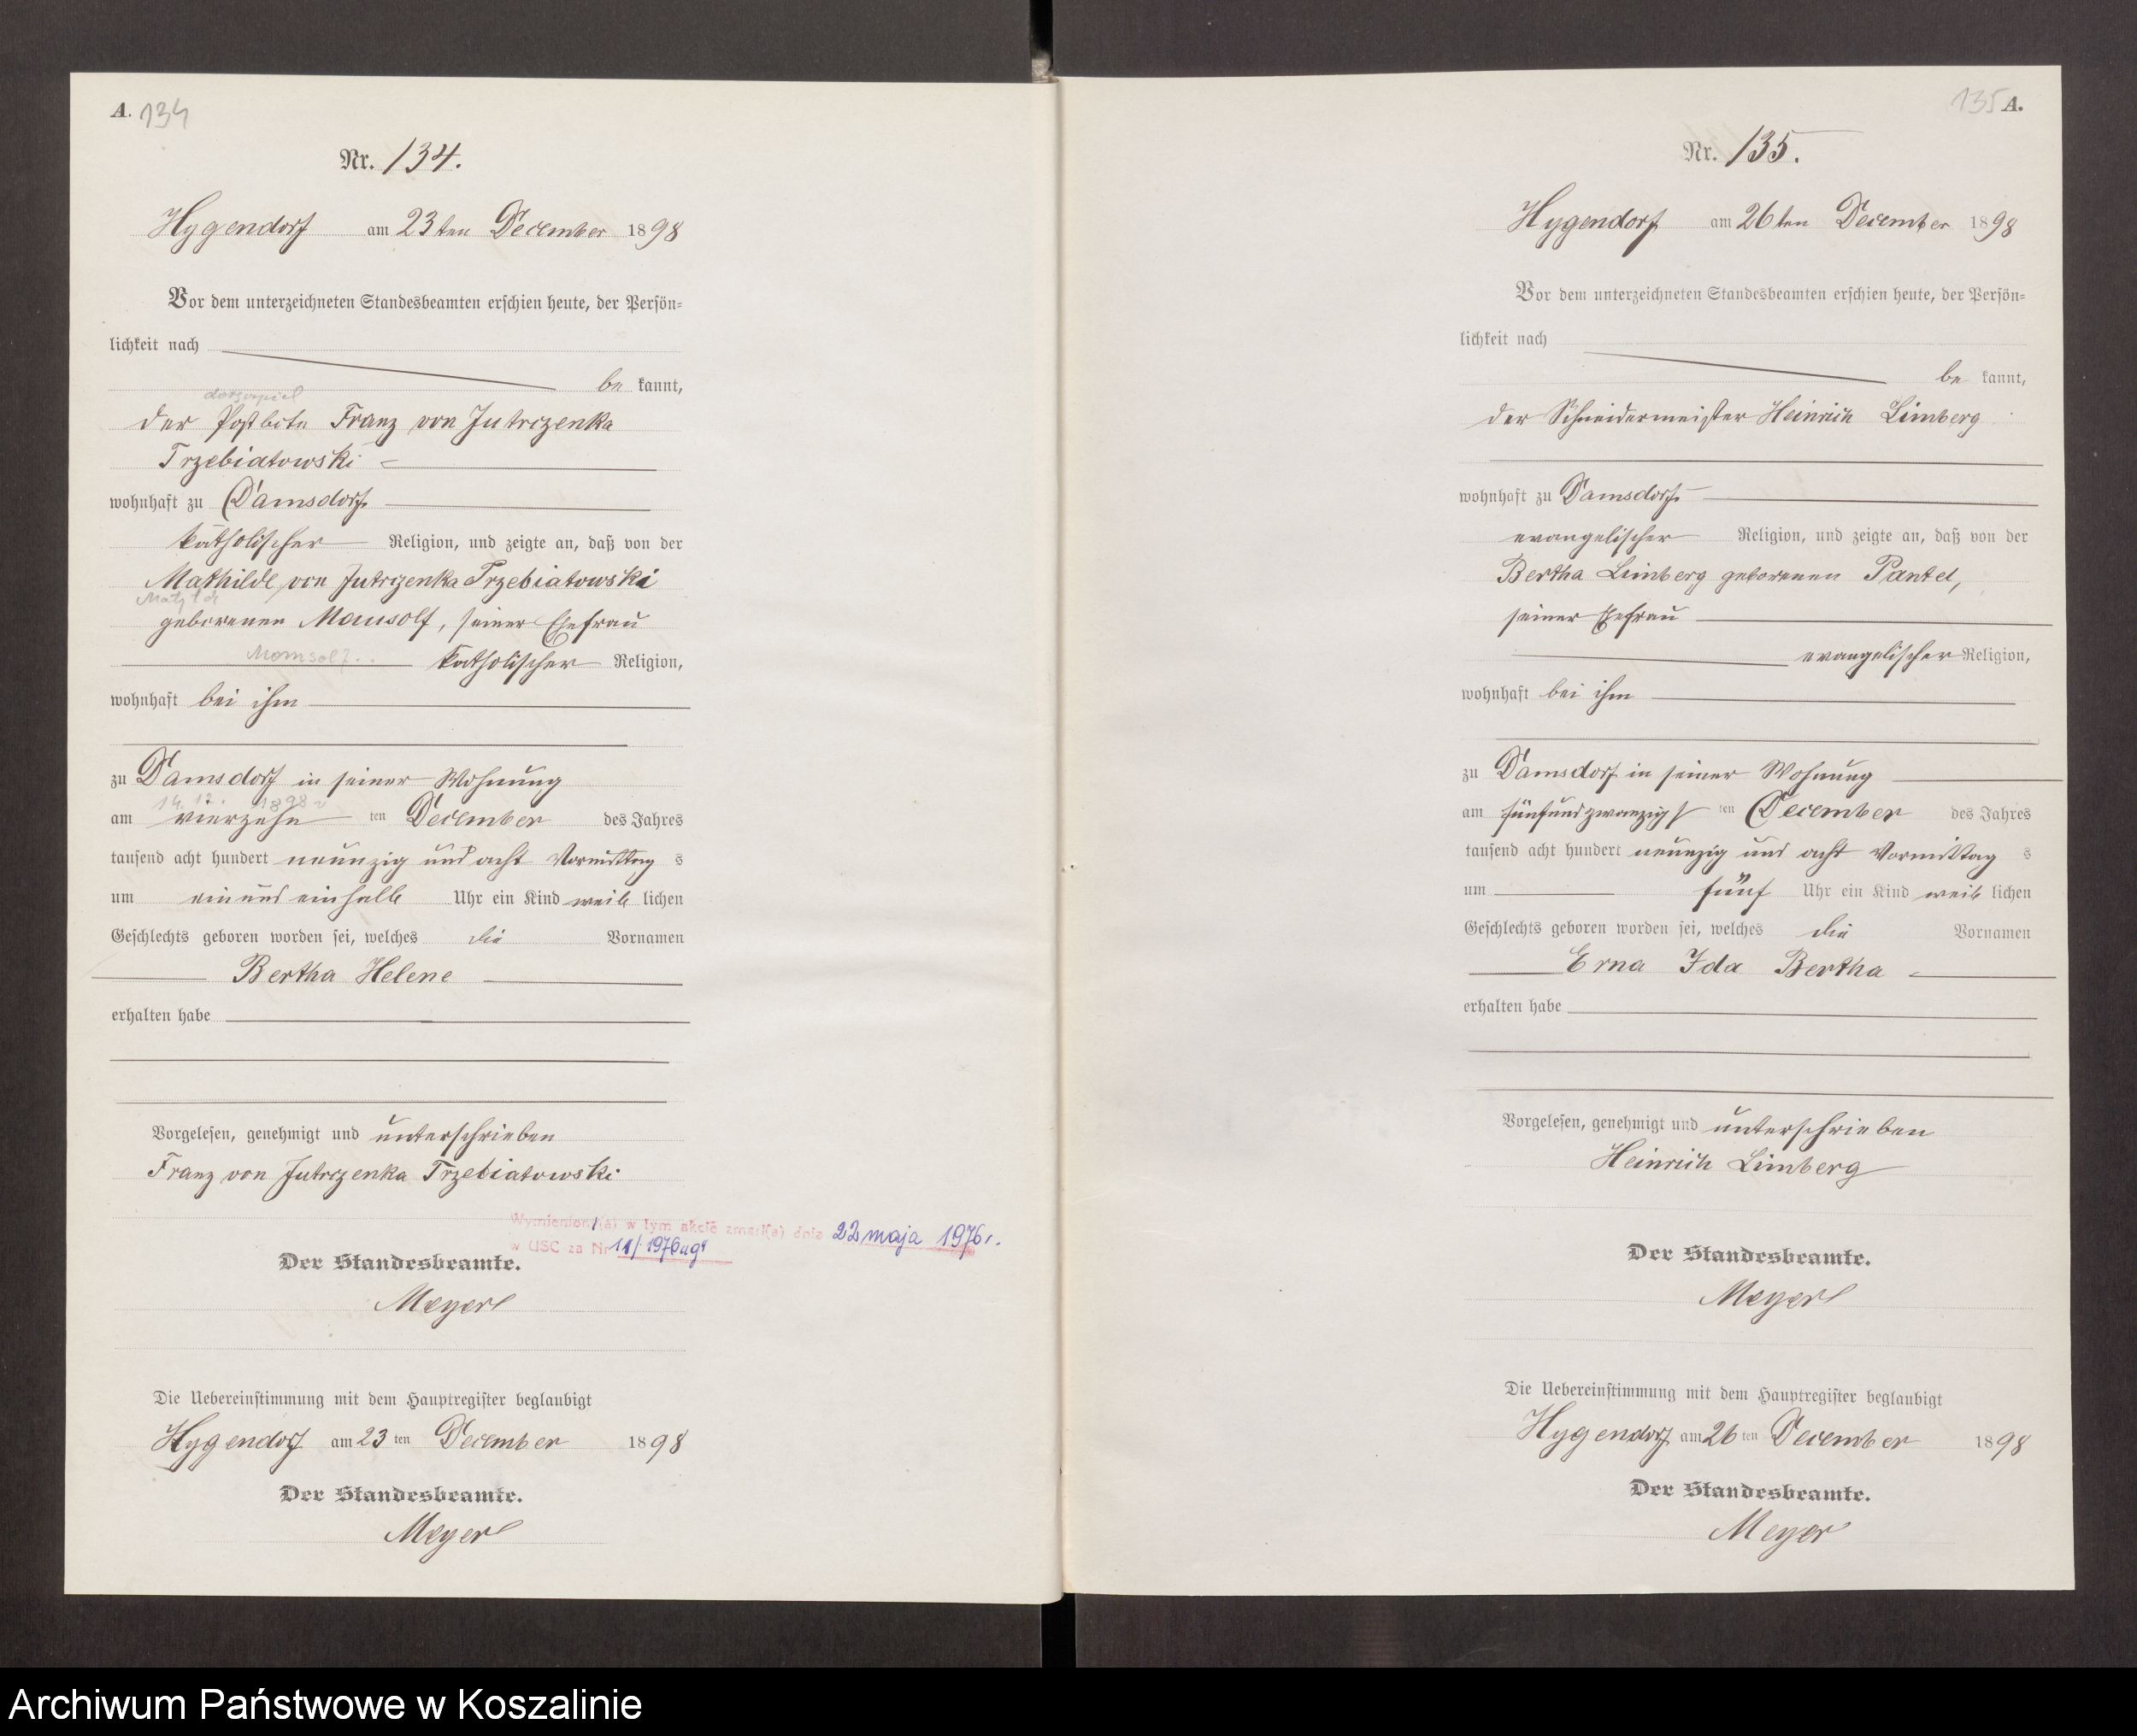 A. 134
Nr. 134.
Hygendorf am 23ten December 1898
Vor dem unterzeichneten Standesbeamten erschien heute, der Persön-
lichkeit nach
be kannt,
der Postbote Franz von Jutrzenka
Trzebiatowski
wohnhaft zu Damsdorf
katholischer Religion, und zeigte an, daß von der
Mathilde von Jutrzenka Trzebiatowski
geborenen Mausolf, seiner Ehefrau
katholischer Religion,
wohnhaft bei ihm
zu Damsdorf in seiner Wohnung
14. 12. 1898
am vierzehn ten December des Jahres
tausend acht hundert neunzig und acht Vormittag s
um ein und einhalb Uhr ein Kind weib lichen
Geschlechts geboren worden sei, welches die Vornamen
Bertha Helene
erhalten habe
Vorgelesen, genehmigt und unterschrieben
Franz von Jutrzenka Trzebiatowski
Wymieniony(a) w tym akcie zmarł(a) dnia 22 maja 1976 r.
w USC za Nr 11/1976
Der Standesbeamte.
Meyer
Die Uebereinstimmung mit dem Hauptregister beglaubigt
Hygendorf am 23 ten December 1898
Der Standesbeamte.
Meyer
135 A.
Nr. 135.
Hygendorf am 26ten December 1898
Vor dem unterzeichneten Standesbeamten erschien heute, der Persön-
lichkeit nach
be kannt,
der Schneidermeister Heinrich Limberg
wohnhaft zu Damsdorf
evangelischer Religion, und zeigte an, daß von der
Bertha Limberg geborenen Pantel,
seiner Ehefrau
evangelischer Religion,
wohnhaft bei ihm
zu Damsdorf in seiner Wohnung
am fünfundzwanzigs ten December des Jahres
tausend acht hundert neunzig und acht Vormittag s
um fünf Uhr ein Kind weib lichen
Geschlechts geboren worden sei, welches die Vornamen
Erna Ida Bertha
erhalten habe
Vorgelesen, genehmigt und unterschrieben
Heinrich Limberg
Der Standesbeamte.
Meyer
Die Uebereinstimmung mit dem Hauptregister beglaubigt
Hygendorf am 26 ten December 1898
Der Standesbeamte.
Meyer
Archiwum Państwowe w Koszalinie